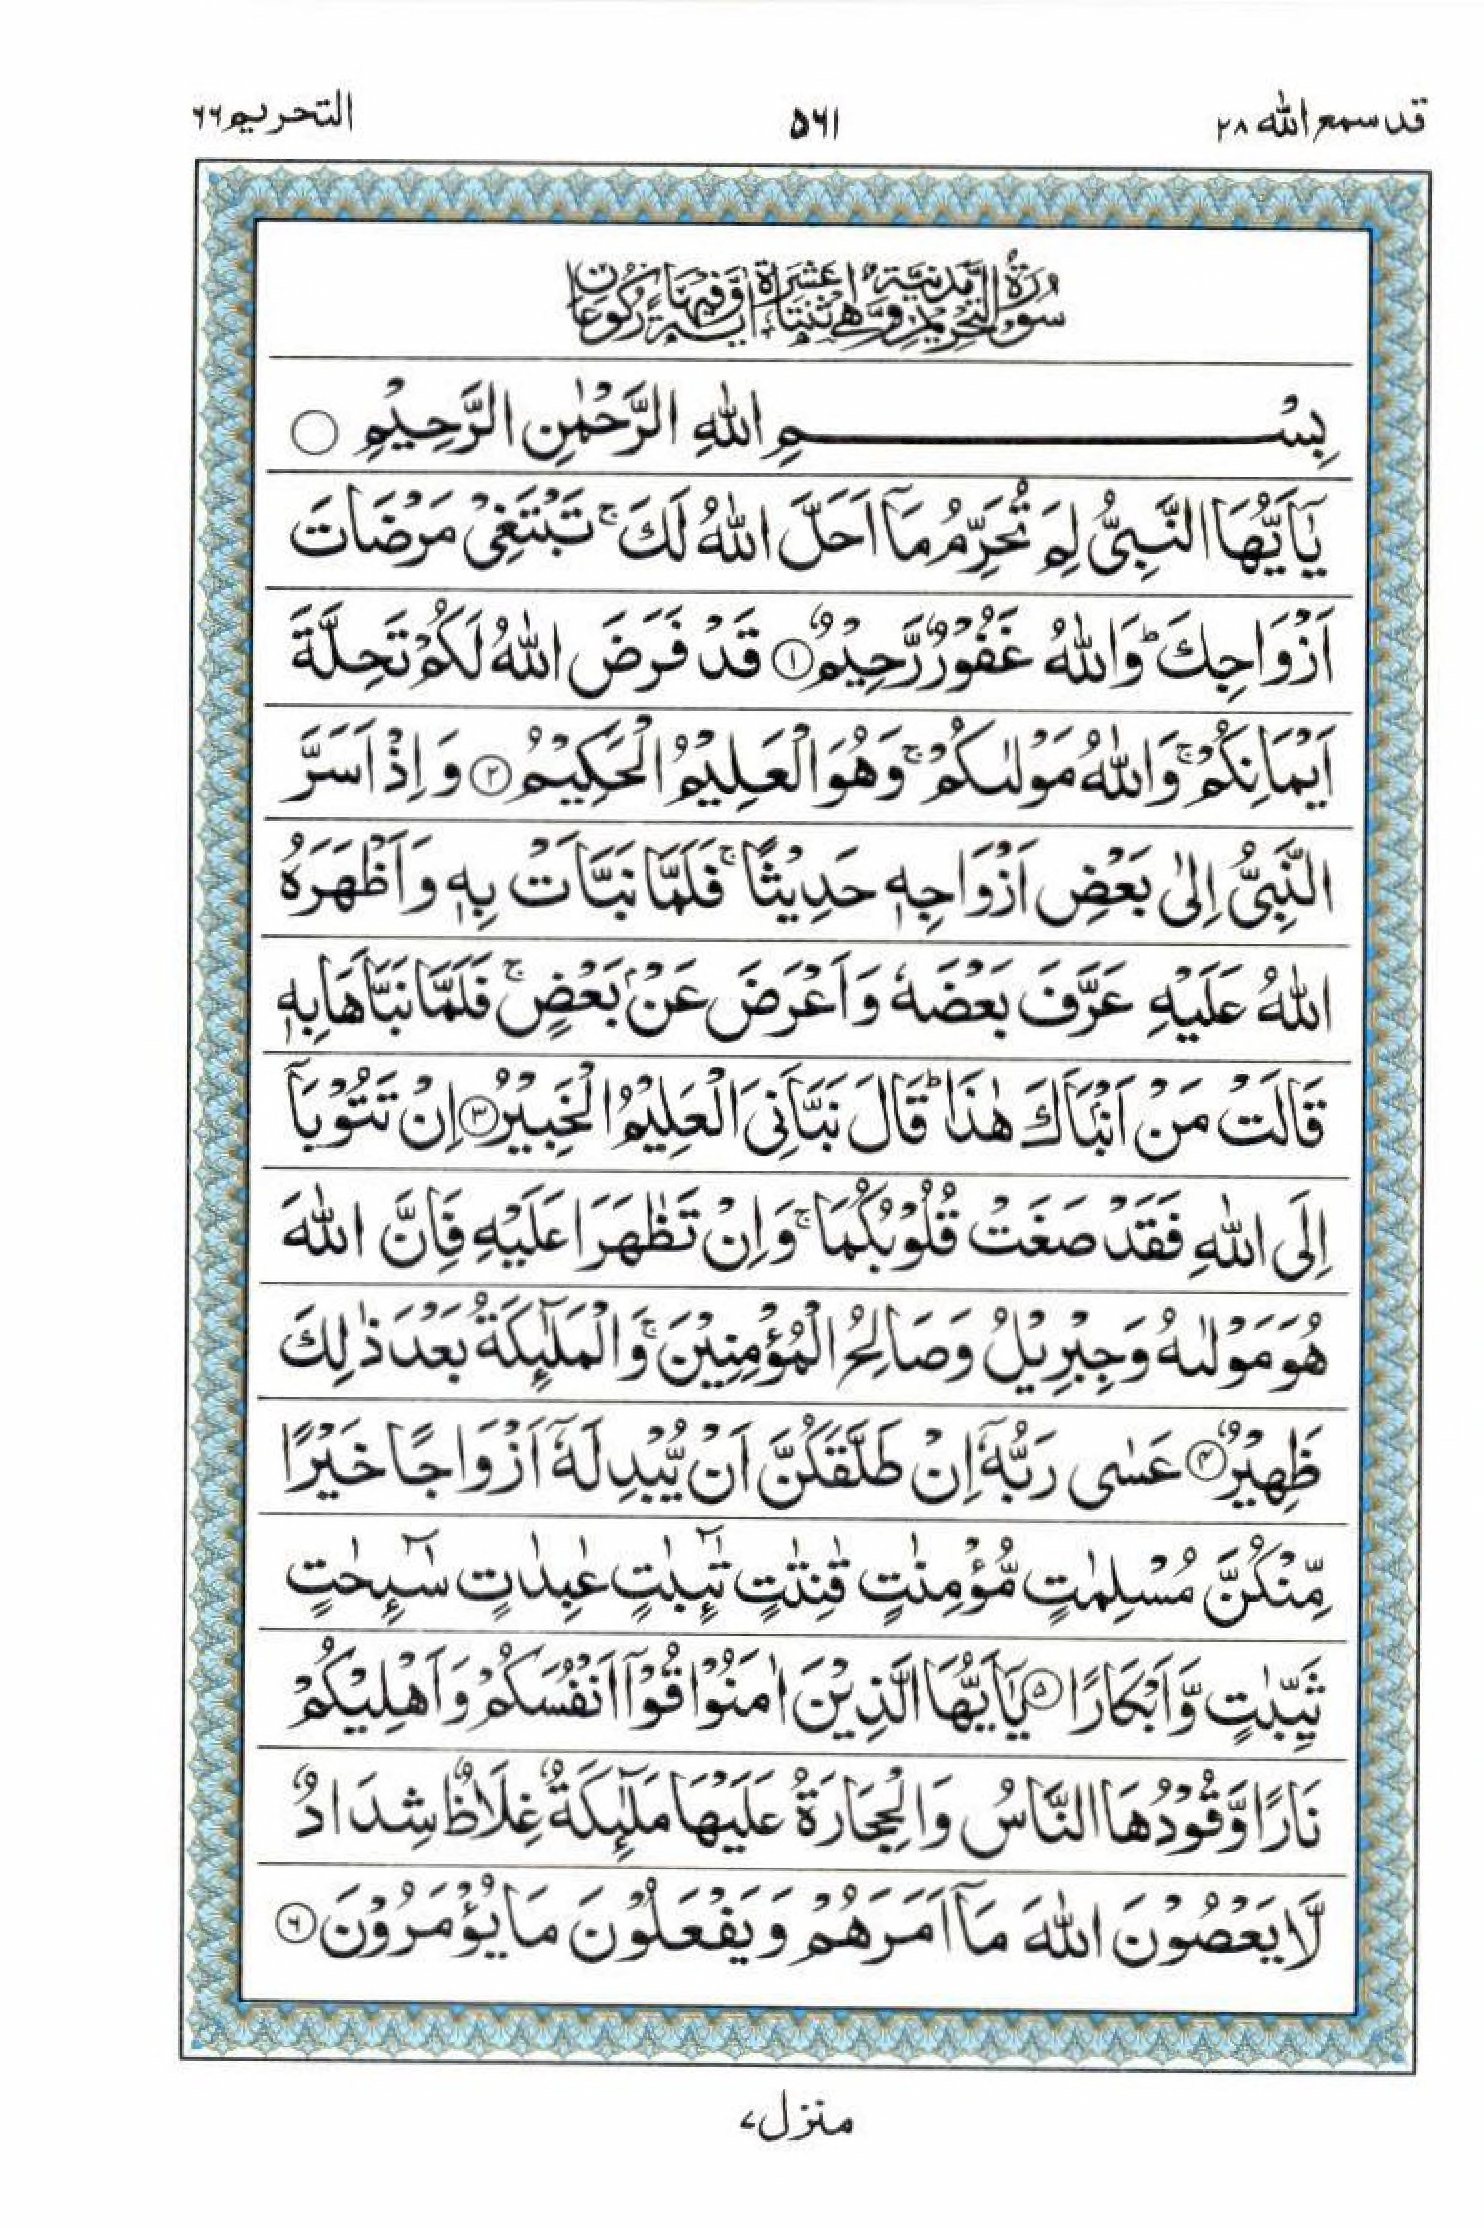 قد سمع الله ٢٨
٥٦١
التحريم ٦٦
سُوْرَةُ التَّحْرِيْمِ مَدَنِيَّةٌ وَّهِيَ اثْنَتَا عَشْرَةَ اٰيَةً وَّفِيْهَا رُكُوْعَانِ
بِسْمِ اللّٰهِ الرَّحْمٰنِ الرَّحِيْمِ ○
يٰٓاَيُّهَا النَّبِيُّ لِمَ تُحَرِّمُ مَآ اَحَلَّ اللّٰهُ لَكَ ۚ تَبْتَغِيْ مَرْضَاتَ
اَزْوَاجِكَ ؕ وَاللّٰهُ غَفُوْرٌ رَّحِيْمٌ ﴿١﴾ قَدْ فَرَضَ اللّٰهُ لَكُمْ تَحِلَّةَ
اَيْمَانِكُمْ ۚ وَاللّٰهُ مَوْلٰىكُمْ ۚ وَهُوَ الْعَلِيْمُ الْحَكِيْمُ ﴿٢﴾ وَاِذْ اَسَرَّ
النَّبِيُّ اِلٰى بَعْضِ اَزْوَاجِهٖ حَدِيْثًا ۚ فَلَمَّا نَبَّاَتْ بِهٖ وَاَظْهَرَهُ
اللّٰهُ عَلَيْهِ عَرَّفَ بَعْضَهٗ وَاَعْرَضَ عَنْۢ بَعْضٍ ۚ فَلَمَّا نَبَّاَهَا بِهٖ
قَالَتْ مَنْ اَنْۢبَاَكَ هٰذَا ؕ قَالَ نَبَّاَنِيَ الْعَلِيْمُ الْخَبِيْرُ ﴿٣﴾ اِنْ تَتُوْبَآ
اِلَى اللّٰهِ فَقَدْ صَغَتْ قُلُوْبُكُمَا ۚ وَاِنْ تَظٰهَرَا عَلَيْهِ فَاِنَّ اللّٰهَ
هُوَ مَوْلٰىهُ وَجِبْرِيْلُ وَصَالِحُ الْمُؤْمِنِيْنَ ۚ وَالْمَلٰٓئِكَةُ بَعْدَ ذٰلِكَ
ظَهِيْرٌ ﴿٤﴾ عَسٰى رَبُّهٗٓ اِنْ طَلَّقَكُنَّ اَنْ يُّبْدِلَهٗٓ اَزْوَاجًا خَيْرًا
مِّنْكُنَّ مُسْلِمٰتٍ مُّؤْمِنٰتٍ قٰنِتٰتٍ تٰٓئِبٰتٍ عٰبِدٰتٍ سٰٓئِحٰتٍ
ثَيِّبٰتٍ وَّاَبْكَارًا ﴿٥﴾ يٰٓاَيُّهَا الَّذِيْنَ اٰمَنُوْا قُوْٓا اَنْفُسَكُمْ وَاَهْلِيْكُمْ
نَارًا وَّقُوْدُهَا النَّاسُ وَالْحِجَارَةُ عَلَيْهَا مَلٰٓئِكَةٌ غِلَاظٌ شِدَادٌ
لَّا يَعْصُوْنَ اللّٰهَ مَآ اَمَرَهُمْ وَيَفْعَلُوْنَ مَا يُؤْمَرُوْنَ ﴿٦﴾
منزل ٧